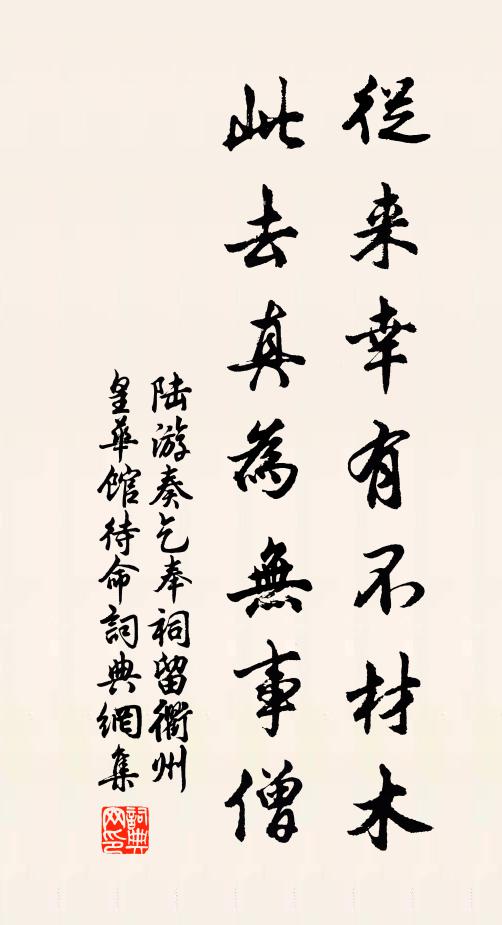 從来幸有不材木
此去真為無事僧
陆游奏乞奉祠留衢州
皇華馆待命詞典網集
詞典
网印